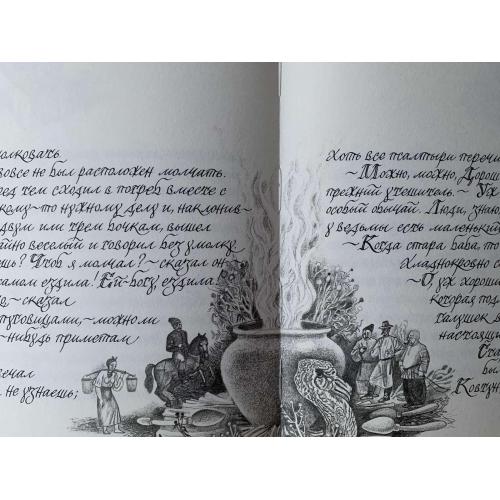 олковать.
вовсе не был расположен молчать.
ред тем сходил в погреб вместе с
кому-то нужному делу и, наклонив-
двум или трём бочкам, вышел
айно весёлый и говорил без умолку.
ешь? Чтоб я молчал? ~ сказал он ~
самом ездила! Ей-богу, ездила.
о, ~ сказал
пуговицами, ~ можно ли
~нибудь приметам
вечал
не узнаешь;
хоть все псалтыри перечи
~ Можно, можно, Дорош
прежний утешитель. ~ Ух
особый обычай. Люди, знаю
у ведьмы есть маленький
~ Когда стара баба, то
хладнокровно с
~ О, уж хороши
которая под
галушек в
настоящи
Ста
бы
Ковтун